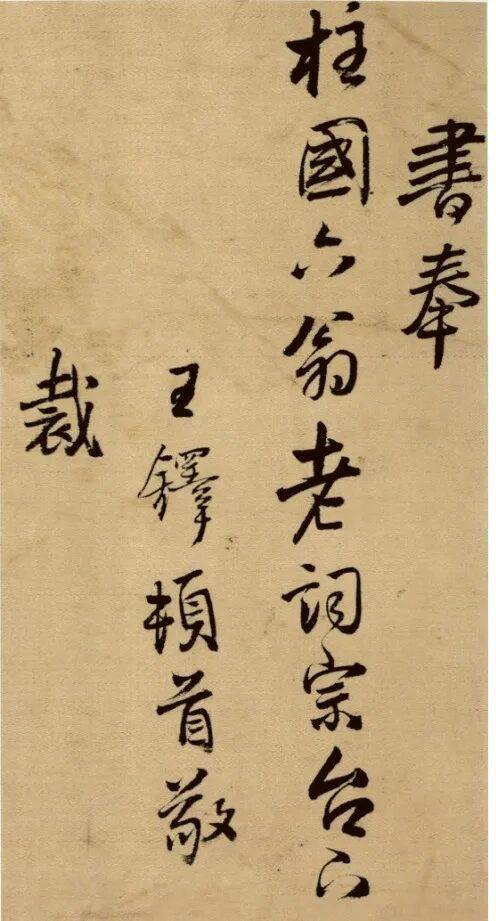 書奉
柱國六翁老詞宗台下
王鐸頓首敬
裁